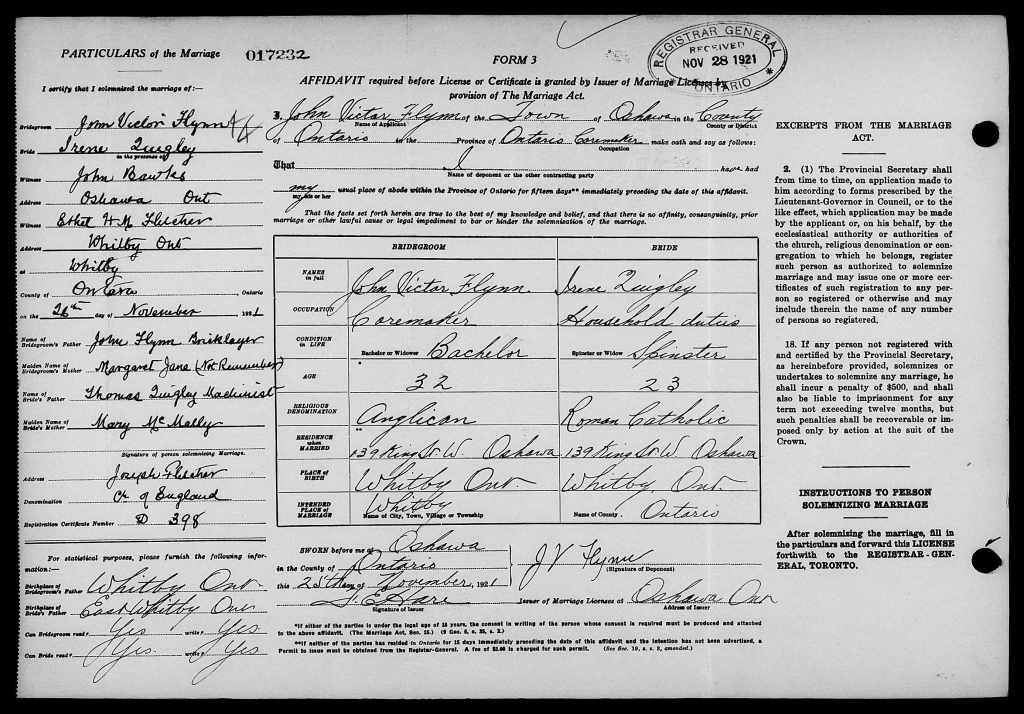 PARTICULARS of the Marriage
017232
I certify that I solemnized the marriage of:—
Bridegroom John Victor Flynn
Bride Irene Quigley
in the presence of
Witness John Bawks
Address Oshawa Ont
Witness Ethel H M Fletcher
Address Whitby Ont
at Whitby
County of Ontario, Ontario
on the 26th day of November 1921
Name of Bridegroom's Father John Flynn Bricklayer
Maiden Name of Bridegroom's Mother Margaret Jane (Not Remember)
Name of Bride's Father Thomas Quigley Machinist
Maiden Name of Bride's Mother Mary McMally
Signature of person solemnizing Marriage.
Address Joseph Fletcher
Denomination Ch of England
Registration Certificate Number D 398
For statistical purposes, please furnish the following information:—
Birthplace of Bridegroom's Father Whitby Ont
Birthplace of Bride's Father East Whitby Ont
Can Bridegroom read? Yes write? Yes
Can Bride read? Yes. write? Yes
FORM 3
REGISTRAR GENERAL
RECEIVED
NOV 28 1921
ONTARIO
AFFIDAVIT required before License or Certificate is granted by Issuer of Marriage Licenses by
provision of The Marriage Act.
I, John Victor Flynn of the Town of Oshawa in the County
Name of Applicant
County or District
of Ontario in the Province of Ontario Coremaker make oath and say as follows:
Occupation
That I have had
Name of deponent or the other contracting party
my usual place of abode within the Province of Ontario for fifteen days** immediately preceding the date of this affidavit.
my, his or her
That the facts set forth herein are true to the best of my knowledge and belief, and that there is no affinity, consanguinity, prior
marriage or other lawful cause or legal impediment to bar or hinder the solemnization of the marriage.
BRIDEGROOM BRIDE
NAMES in full John Victor Flynn Irene Quigley
OCCUPATION Coremaker Household duties
CONDITION in LIFE Bachelor or Widower Bachelor Spinster or Widow Spinster
AGE 32 23
RELIGIOUS DENOMINATION Anglican Roman Catholic
RESIDENCE when MARRIED 139 King St W. Oshawa 139 King St W. Oshawa
PLACE OF BIRTH Whitby Ont Whitby Ont
INTENDED PLACE OF MARRIAGE Whitby Ontario
Name of City, Town, Village or Township Name of County
SWORN before me at Oshawa
in the County of Ontario
this 25th day of November, 1921
J V Flynn
(Signature of Deponent)
Hare
Signature of Issuer
Issuer of Marriage Licenses at Oshawa Ont
Address of Issuer
*If either of the parties is under the legal age of 18 years, the consent in writing of the person whose consent is required must be produced and attached
to the above affidavit. (The Marriage Act, Sec. 15.)
**If neither of the parties has resided in Ontario for 15 days immediately preceding the date of this affidavit and the intention has not been advertised, a
Permit to issue must be obtained from the Registrar-General. A fee of $2.00 is charged for such permit. (See Sec. 19, s. s. 2, amended.)
EXCERPTS FROM THE MARRIAGE
ACT.
2. (1) The Provincial Secretary shall
from time to time, on application made to
him according to forms prescribed by the
Lieutenant-Governor in Council, or to the
like effect, which application may be made
by the applicant or, on his behalf, by the
ecclesiastical authority or authorities of
the church, religious denomination or con-
gregation to which he belongs, register
such person as authorized to solemnize
marriage and may issue one or more cer-
tificates of such registration to any per-
son so registered or otherwise and may
include therein the name of any number
of persons so registered.
18. If any person not registered with
and certified by the Provincial Secretary,
as hereinbefore provided, solemnizes or
undertakes to solemnize any marriage, he
shall incur a penalty of $500, and shall
also be liable to imprisonment for any
term not exceeding twelve months, but
such penalties shall be recoverable or im-
posed only by action at the suit of the
Crown.
INSTRUCTIONS TO PERSON
SOLEMNIZING MARRIAGE
After solemnizing the marriage, fill in
the particulars and forward this LICENSE
forthwith to the REGISTRAR-GEN-
ERAL, TORONTO.